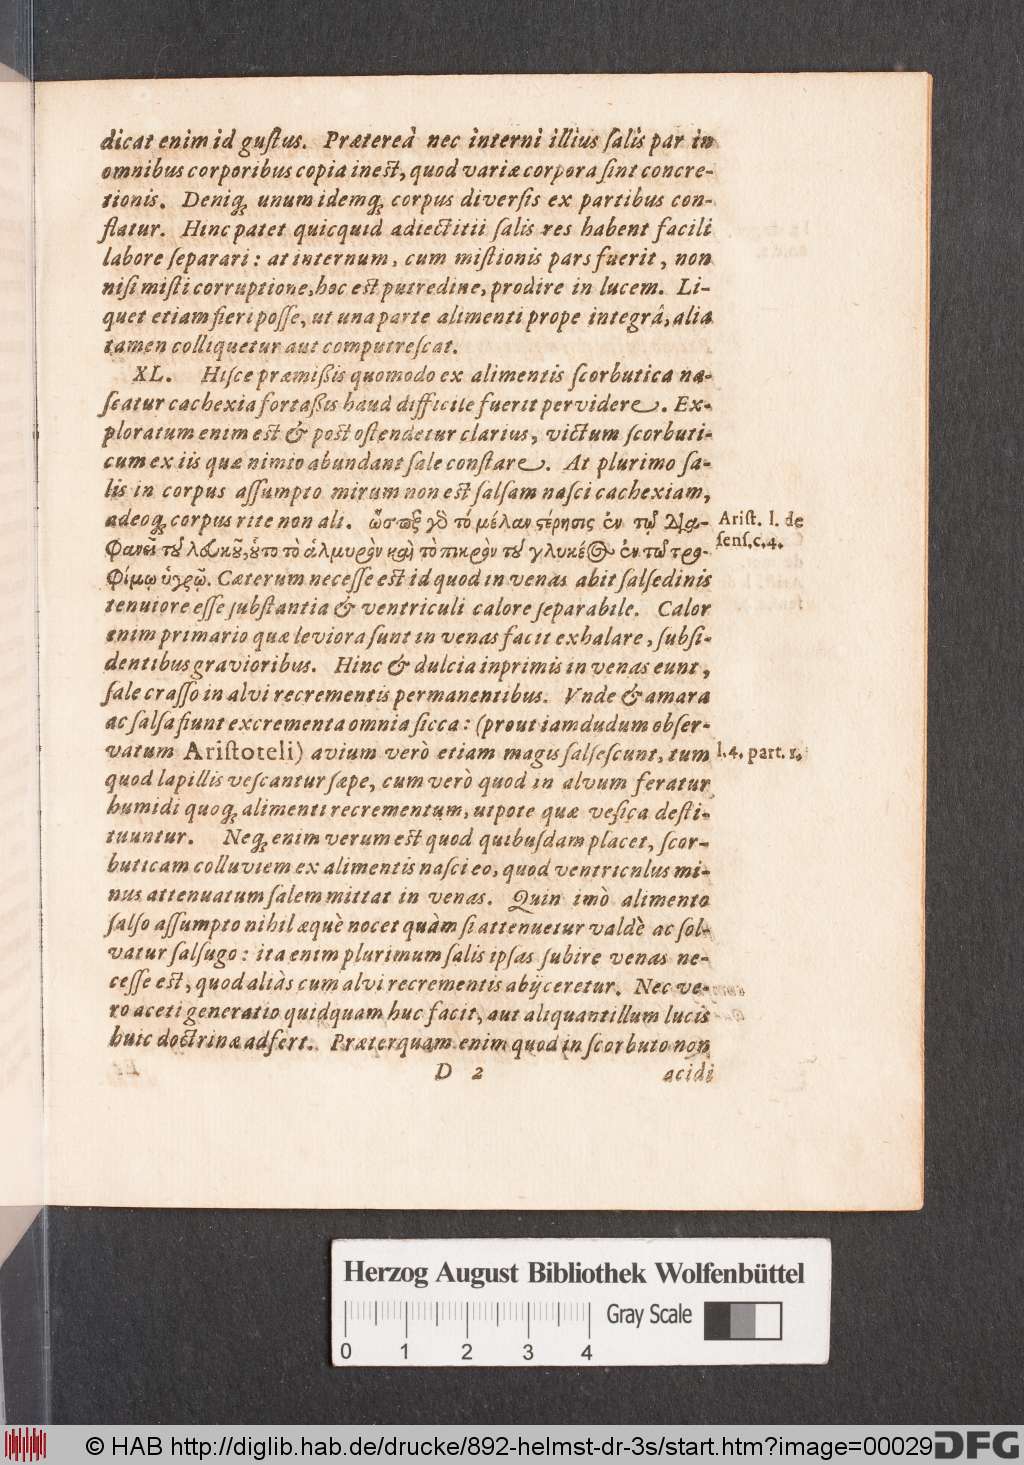 dicat enim id gustus. Prætereà nec interni illius salis par in
omnibus corporibus copia inest, quod variæ corpora sint concre-
tionis. Deniq; unum idemq; corpus diversis ex partibus con-
flatur. Hinc patet quicquid adiectitii salis res habent facili
labore separari: at internum, cum mistionis pars fuerit, non
nisi misti corruptione, hoc est putredine, prodire in lucem. Li-
quet etiam fieri posse, ut una parte alimenti prope integrâ, alia
tamen colliquetur aut computrescat.
XL. Hisce præmißis quomodo ex alimentis scorbutica na-
scatur cachexia fortaßis haud difficile fuerit pervidere. Ex-
ploratum enim est & post ostendetur clarius, victum scorbuti-
cum ex iis quæ nimio abundant sale constare. At plurimo sa-
lis in corpus assumpto mirum non est salsam nasci cachexiam,
adeoq; corpus rite non ali. ὥσπερ γὸ τό μέλαν στέρησις ἐν τῷ Δια- Arist. l. de
φανεῖ τοῦ λευκοῦ, οὕτο τὸ ἁλμυρὸν καὶ τὸ πικρὸν τοῦ γλυκέος ἐν τῷ τρο- sens. c. 4.
φίμῳ ὑγρῷ. Cæterum necesse est id quod in venas abit salsedinis
tenuiore esse substantia & ventriculi calore separabile. Calor
enim primario quæ leviora sunt in venas facit exhalare, subsi-
dentibus gravioribus. Hinc & dulcia inprimis in venas eunt,
sale crasso in alvi recrementis permanentibus. Vnde & amara
ac salsa fiunt excrementa omnia sicca: (prout iamdudum obser-
vatum Aristoteli) avium verò etiam magis salsescunt, tum l. 4. part. 1.
quod lapillis vescantur sæpe, cum verò quod in alvum feratur
humidi quoq; alimenti recrementum, utpote quæ vesica desti-
tuuntur. Neq; enim verum est quod quibusdam placet, scor-
buticam colluviem ex alimentis nasci eo, quod ventricnlus mi-
nus attenuatum salem mittat in venas. Quin imò alimento
salso assumpto nihil æquè nocet quàm si attenuetur valdè ac sol-
vatur salsugo: ita enim plurimum salis ipsas subire venas ne-
cesse est, quod aliàs cum alvi recrementis abijceretur. Nec ve-
ro aceti generatio quidquam huc facit, aut aliquantillum lucis
huic doctrinæ adfert. Præterquam enim quod in scorbuto non
D 2 acidi
Herzog August Bibliothek Wolfenbüttel
Gray Scale
0 1 2 3 4
© HAB http://diglib.hab.de/drucke/892-helmst-dr-3s/start.htm?image=00029
DFG